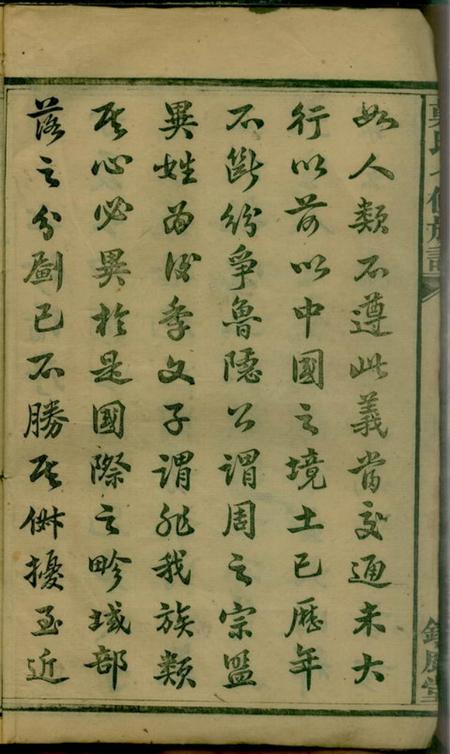 如人類不遵此義當交通未大
行以前以中國之境土已歷年
不斷紛爭魯隱公謂周之宗盟
異姓為後季文子謂非我族類
其心必異於是國際之畛域部
落之分劃已不勝其倂擾至近
氏七修族譜